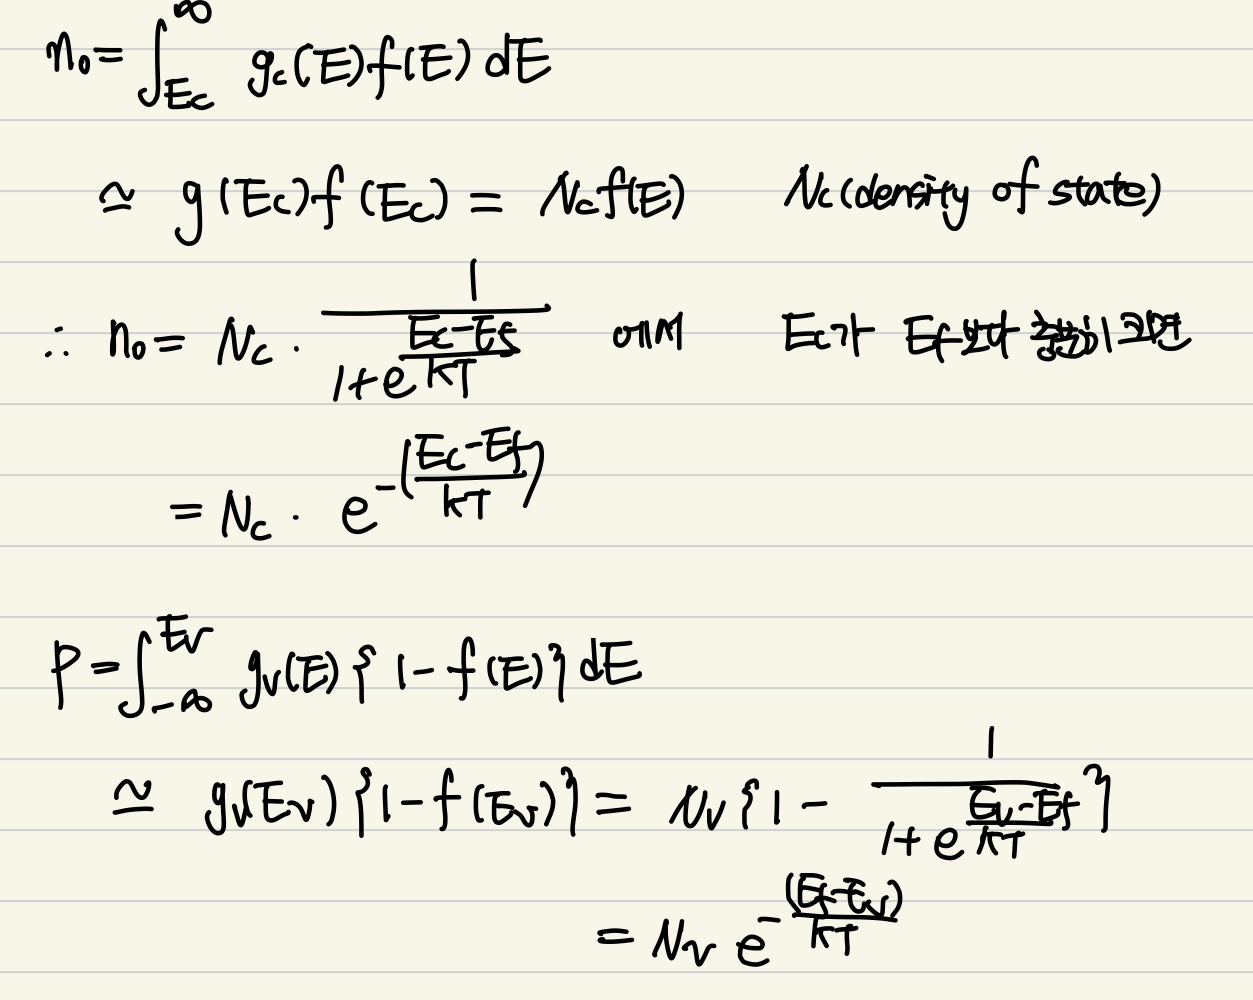 n₀ = ∫_{Ec}^{∞} g_c(E)f(E) dE
≃ g(Ec)f(Ec) = Nc f(E) Nc (density of state)
∴ n₀ = Nc · 1/(1+e^{(Ec-Ef)/kT}) 이때 Ec가 Ef보다 충분히 크면
= Nc · e^{-((Ec-Ef)/kT)}
p = ∫_{-∞}^{Ev} g_v(E) {1-f(E)} dE
≃ g_v(Ev) {1-f(Ev)} = Nv {1 - 1/(1+e^{(Ev-Ef)/kT})}
= Nv e^{-(Ef-Ev)/kT}